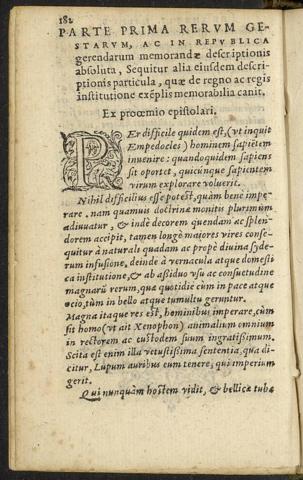 182
PARTE PRIMA RERVM GE-
STARVM, AC IN REPVBLICA
gerendarum memorandæ descriptionis
absoluta, Sequitur alia eiusdem descri-
ptionis particula, quæ de regno ac regis
institutione exẽplis memorabilia canit.
Ex proœmio epistolari.
PEr difficile quidem est, (vt inquit
Empedocles) hominem sapiẽtem
inuenire: quandoquidem sapiens
sit oportet, quicunque sapientem
virum explorare voluerit.
Nihil difficilius esse potest, quàm benè impe-
rare. nam quamuis doctrinæ monitis plurimùm
adiuuatur, & indè decorem quendam ac splen-
dorem accipit, tamen longè maiores vires conse-
quitur à naturali quadam ac propè diuina syde-
rum infusione, deinde à vernacula atque domesti
ca institutione, & ab aßiduo vsu ac consuetudine
magnarũ rerum, qua quotidiè cùm in pace atque
ocio, tùm in bello atque tumultu geruntur.
Magna itaque res est, hominibus imperare, cùm
sit homo (vt ait Xenophon) animalium omnium
in rectorem ac custodem suum ingratissimum.
Scita est enim illa vetustißima sententia, qua di-
citur, Lupum auribus eum tenere, qui imperium
gerit.
Qui nunquàm hostem vidit, & bellicæ tubæ